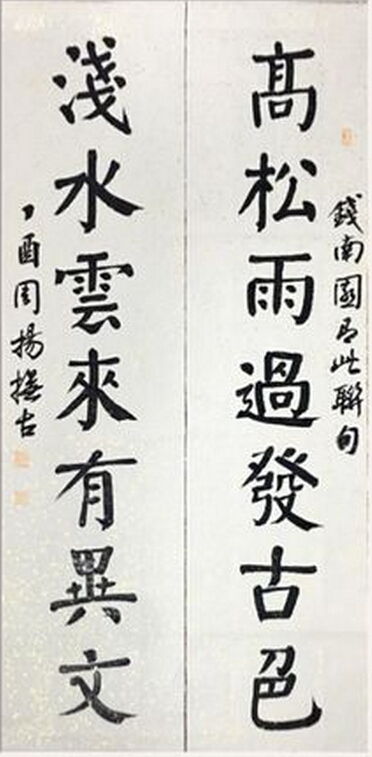 錢南園有此聯句
髙松雨過發古色
淺水雲來有異文
丁酉周揚撫古